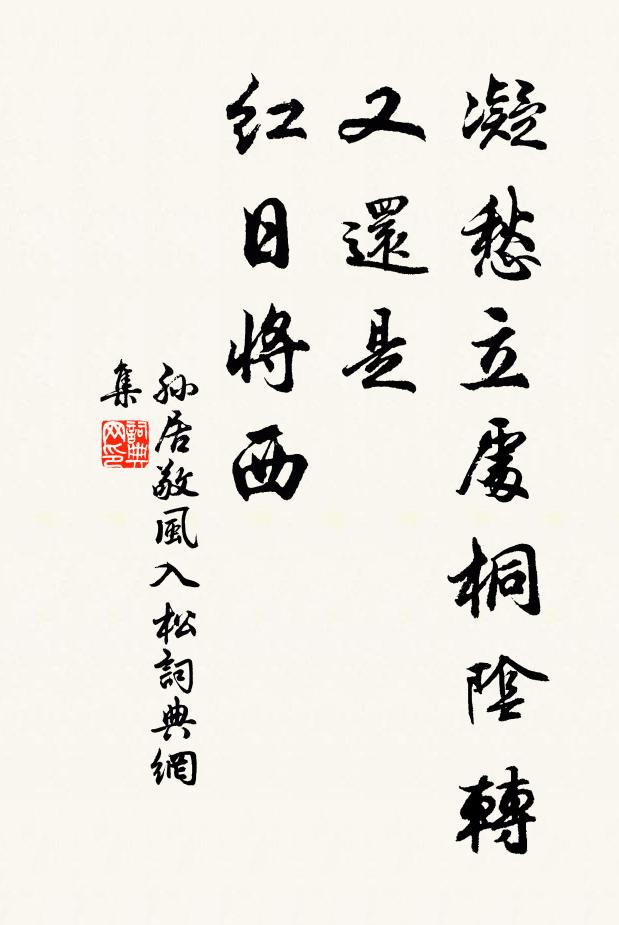 凝愁立處桐陰轉
又還是
紅日將西
孫居敬風入松詞典網
集
詞典
网印